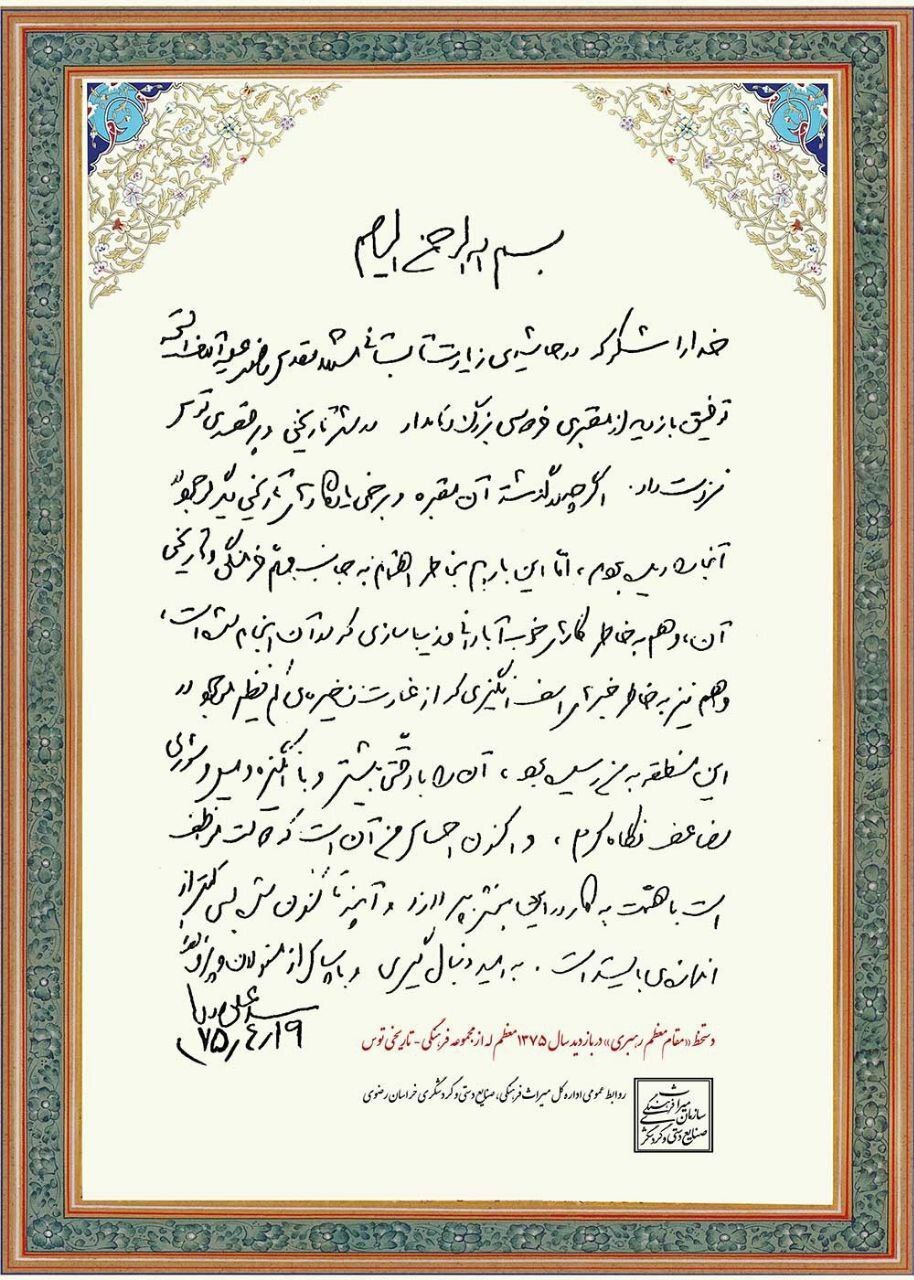 بسم الله الرحمن الرحیم
خدا را شکر که در حاشیه‌ی زیارت تابستانی مشهد مقدس رضوی علیه آلاف التحیة
توفیق بازدید از مقبره‌ی فردوسی بزرگ و نامدار در شهر تاریخی و پرقصه‌ی توس
نیز دست داد. اگرچه در گذشته آن مقبره و برخی یادگارهای تاریخی دیگر موجود در
آنجا را دیده بودم، امّا این بار هم بخاطر اهتمام به جانب مهم فرهنگی و تاریخی
آن، و هم به خاطر کارهای خوب آبادانی و زیباسازی که در آن انجام شده است،
و هم نیز به خاطر خبرهای اسف انگیزی که از غارت ذخیره‌های کم نظیر موجود در
این منطقه به من رسیده بود، آن را با دقّتی بیشتر و با انگیزه و میل و شوری
مضاعف نگاه کردم، و اکنون احساس من آن است که دولت موظف
است با همّت به کار در این بخش بپردازد و آنچه تا کنون شده بسی کمتر از
اندازه‌ی بایسته است. به امید دنبال گیری و با سپاس از مسئولان
سید علی
۷۵/۴/۱۹
دستخط «مقام معظم رهبری» در بازدید سال ۱۳۷۵ معظم له از مجموعه فرهنگی - تاریخی توس
روابط عمومی اداره کل میراث فرهنگی، صنایع دستی و گردشگری خراسان رضوی
سازمان میراث فرهنگی
صنایع دستی و گردشگری